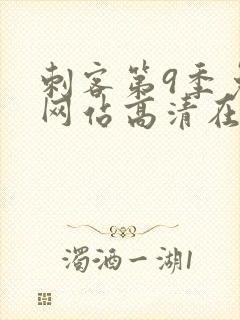 刺客第9季
网佔高清在
濁酒一湖1